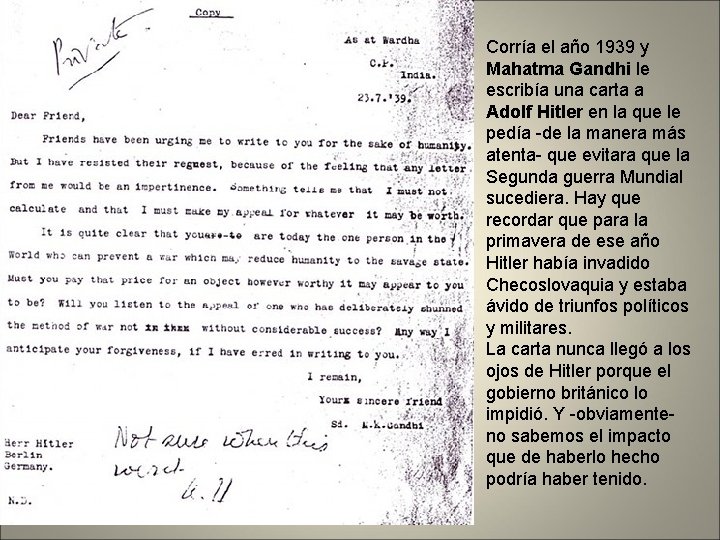 Copy
Private
As at Wardha
C.P.
India.
23.7.'39.
Dear Friend,
Friends have been urging me to write to you for the sake of humanity.
But I have resisted their request, because of the feeling that any letter
from me would be an impertinence. Something tells me that I must not
calculate and that I must make my appeal for whatever it may be worth.
It is quite clear that you are today the one person in the
World who can prevent a war which may reduce humanity to the savage state.
Must you pay that price for an object however worthy it may appear to you
to be? Will you listen to the appeal of one who has deliberately shunned
the method of war not without considerable success? Any way I
anticipate your forgiveness, if I have erred in writing to you.
I remain,
Your sincere friend
Sd. M.K.Gandhi
Herr Hitler
Berlin
Germany.
N.D.
Not sure when this
went
Corría el año 1939 y
Mahatma Gandhi le
escribía una carta a
Adolf Hitler en la que le
pedía -de la manera más
atenta- que evitara que la
Segunda guerra Mundial
sucediera. Hay que
recordar que para la
primavera de ese año
Hitler había invadido
Checoslovaquia y estaba
ávido de triunfos políticos
y militares.
La carta nunca llegó a los
ojos de Hitler porque el
gobierno británico lo
impidió. Y -obviamente-
no sabemos el impacto
que de haberlo hecho
podría haber tenido.